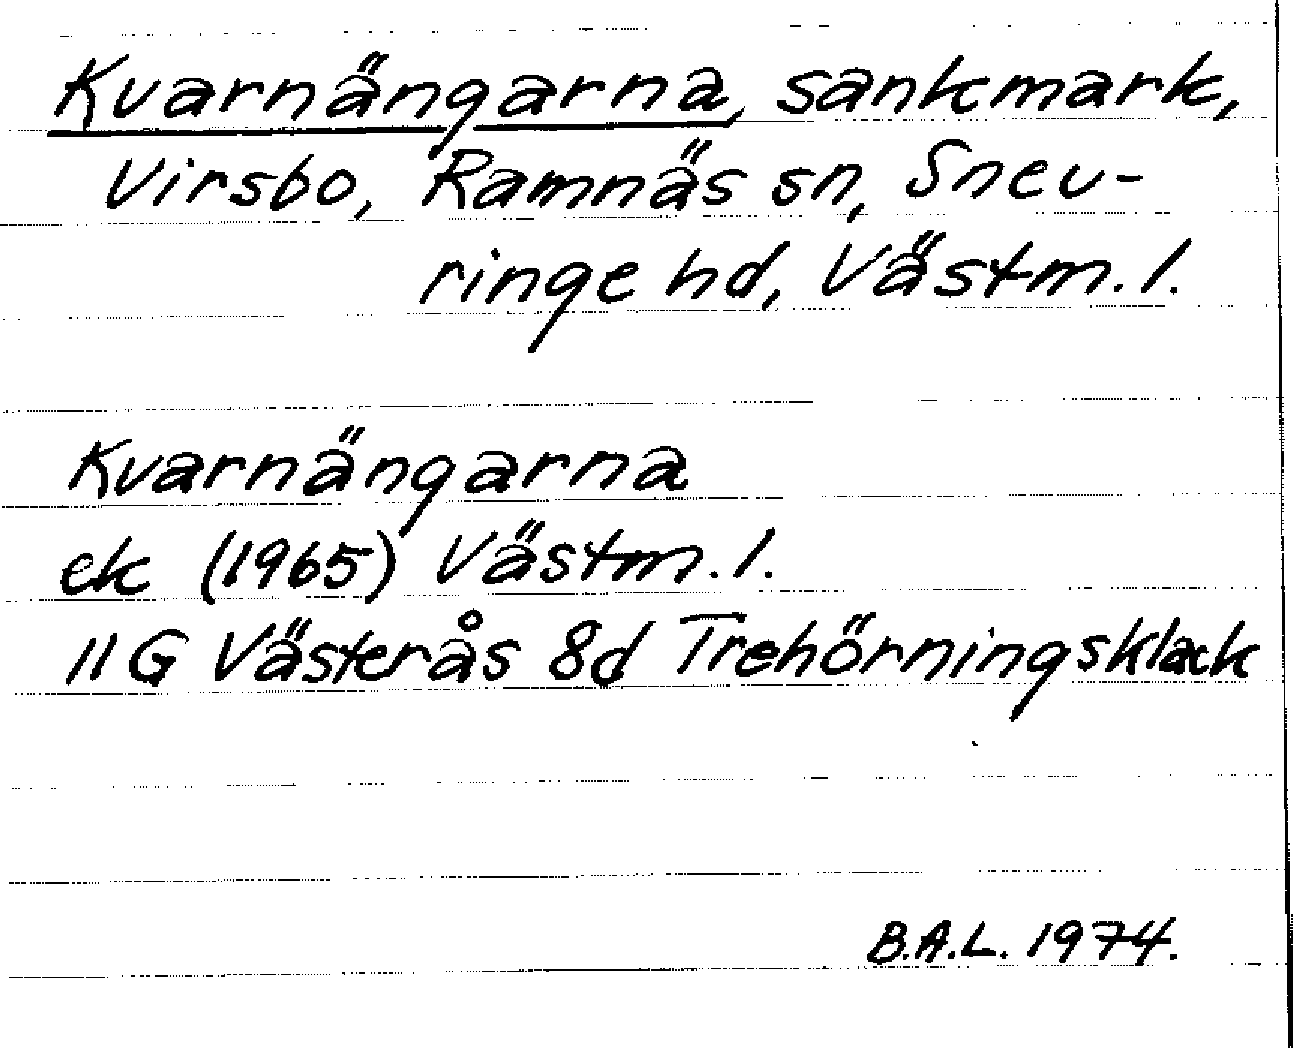 Kvarnängarna, sankmark,
Virsbo, Ramnäs sn, Snev-
ringe hd, Västm. l.
Kvarnängarna
ek (1965) Västm. l.
11 G Västerås 8d Trehörningsklack
B.A.L. 1974.